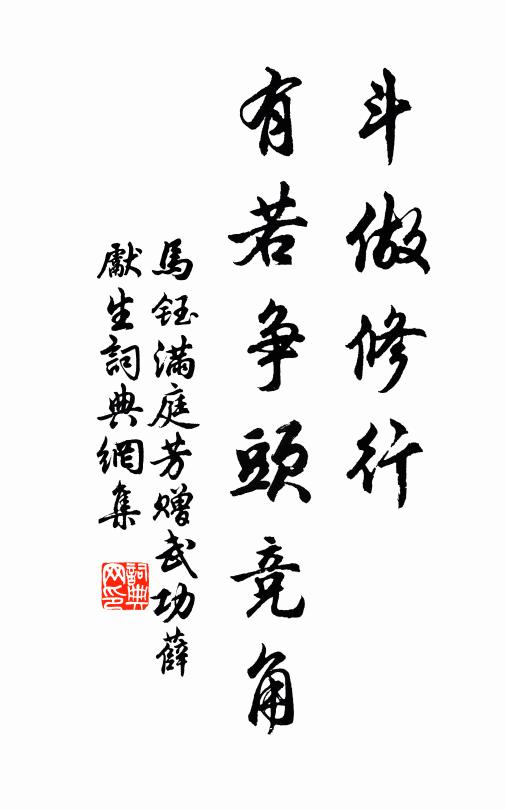 斗做修行
有若争頭竞角
馬鈺满庭芳赠武功薛
獻生詞典網集
詞典
网印